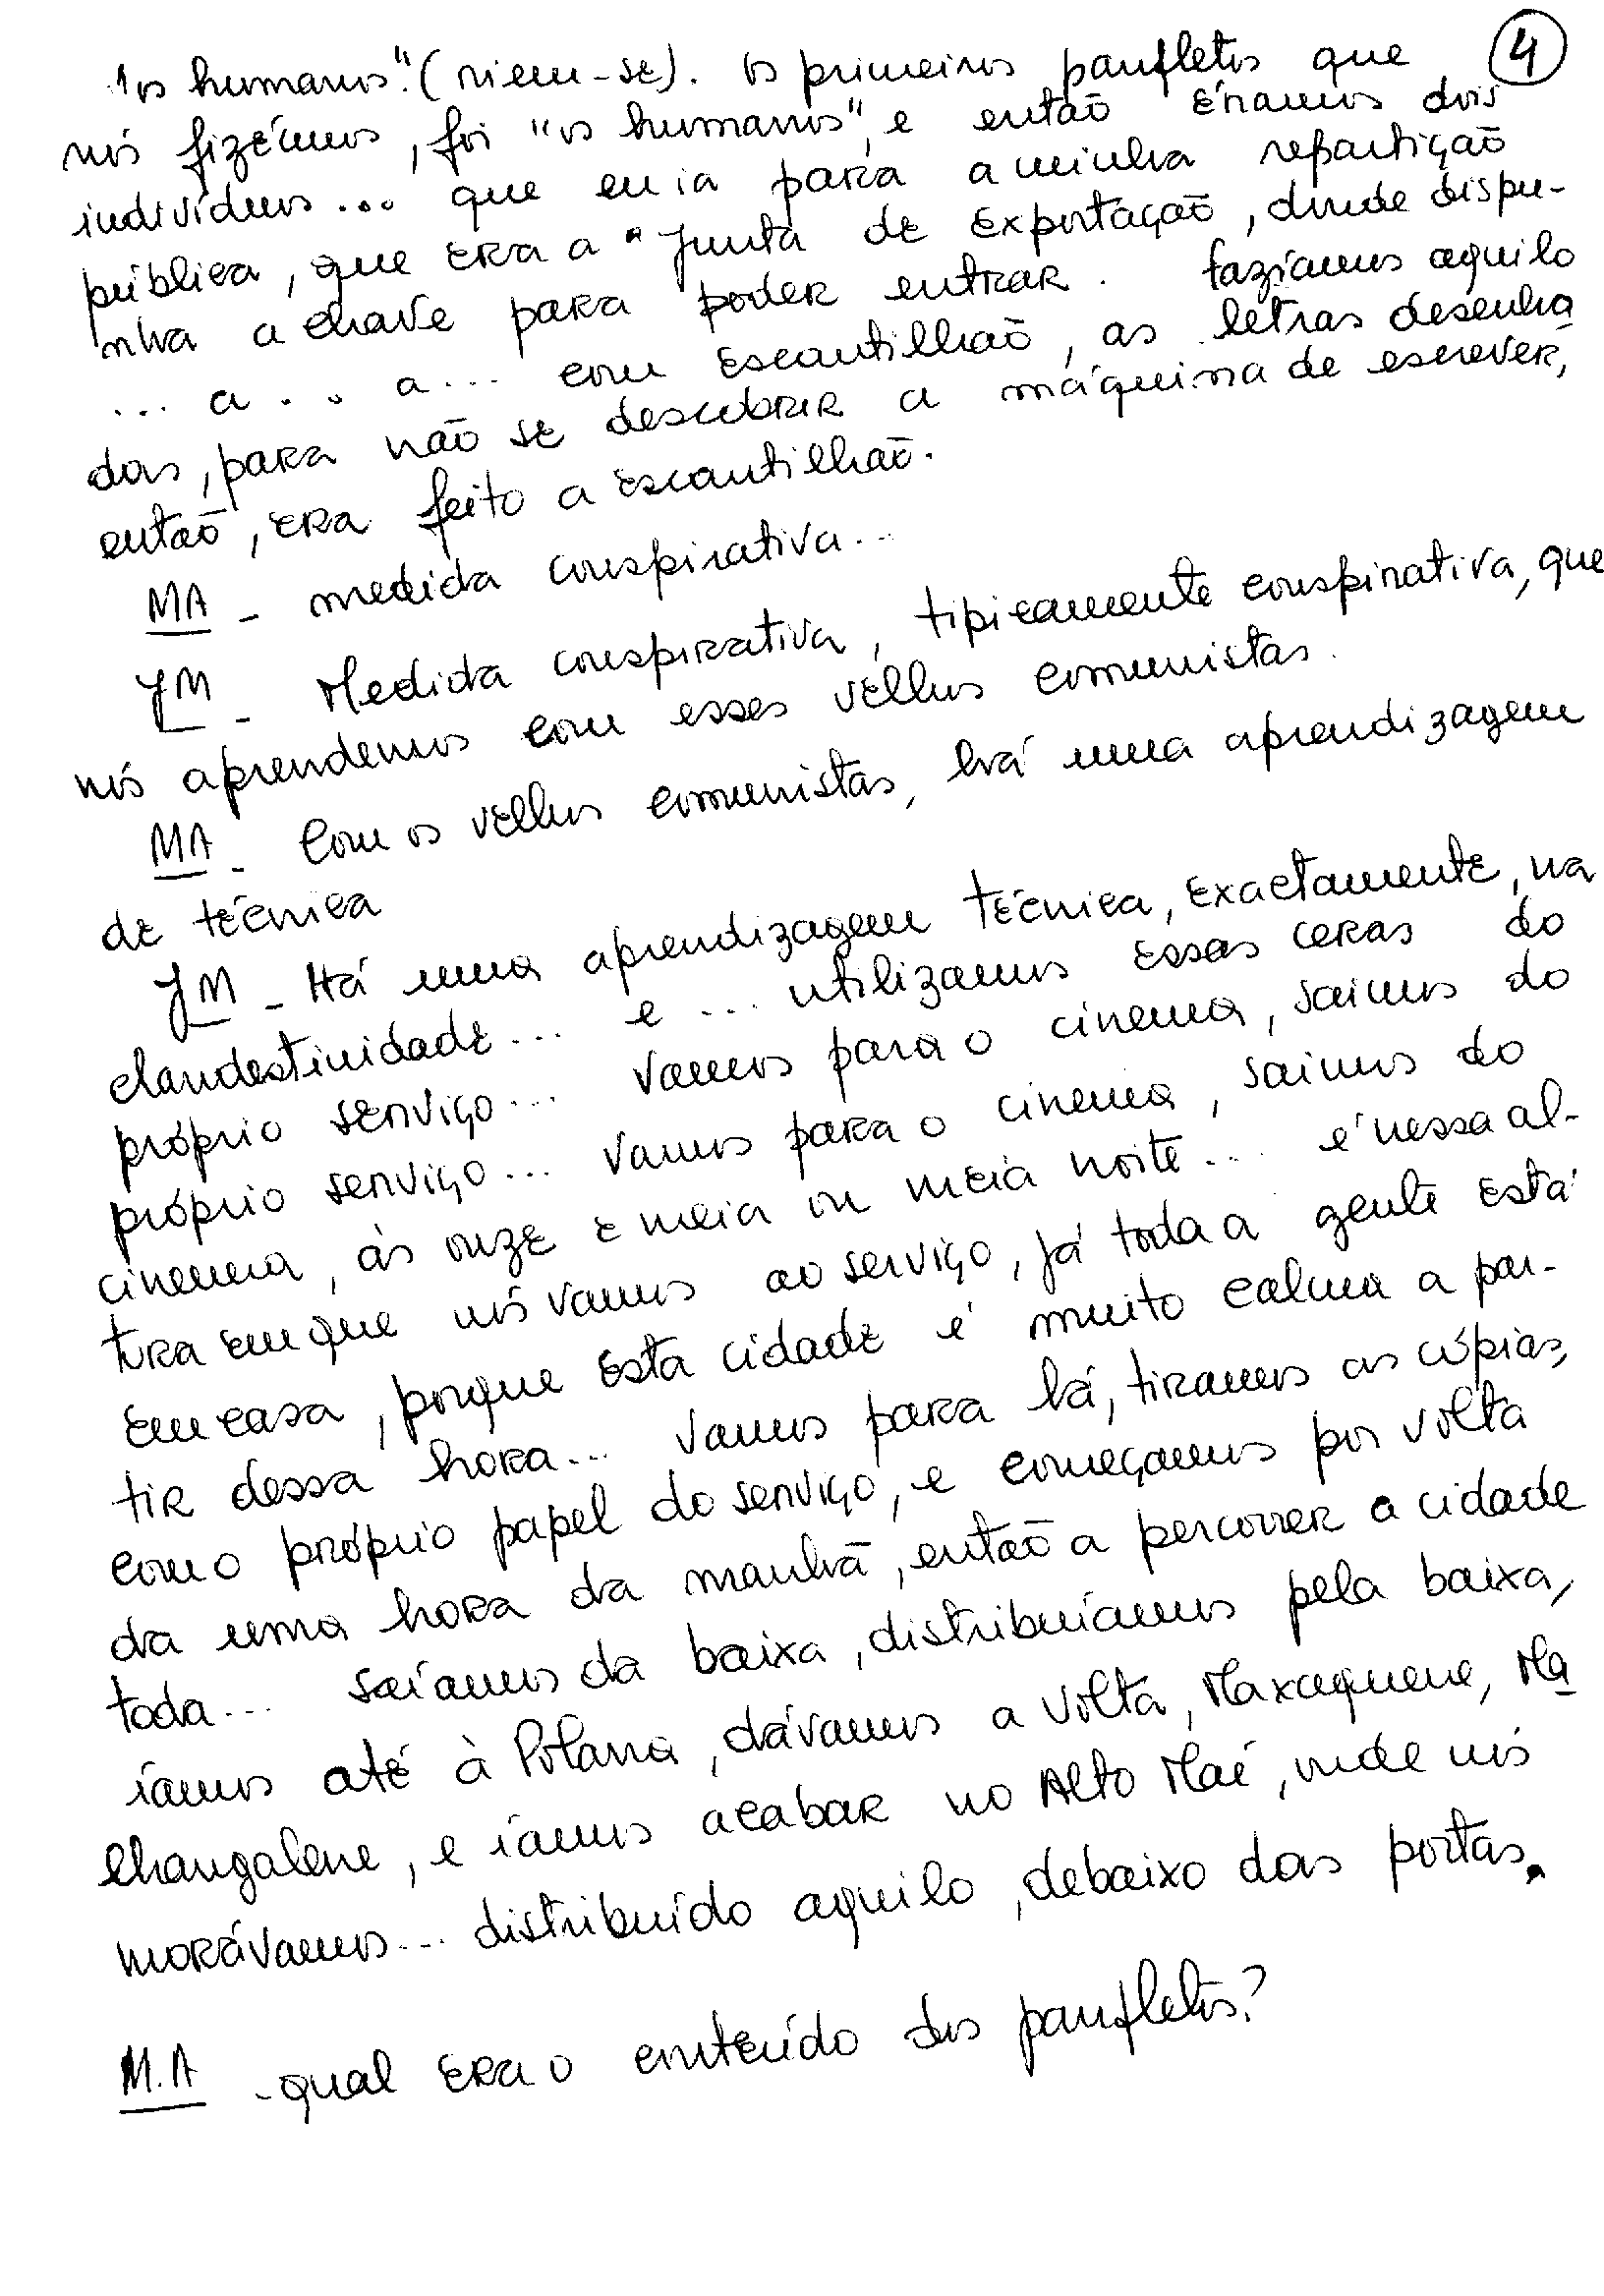 4
"os humanos". (riem-se). Os primeiros panfletos que
nós fizémos, foi "os humanos", e então éramos dois
indivíduos... que eu ia para a minha repartição
pública, que era a "Junta de Exportação, donde dispu-
nha a chave para poder entrar. Fazíamos aquilo
... a... a... com escantilhão, as letras desenha
das, para não se descobrir a máquina de escrever,
então, era feito a escantilhão.
MA - medida conspirativa...
JM - Medida conspirativa, tipicamente conspirativa, que
nós aprendemos com esses velhos comunistas.
MA - Com os velhos comunistas, há uma aprendizagem
de técnica
JM - Há uma aprendizagem técnica, exactamente, na
clandestinidade... e... utilizamos essas ceras do
próprio serviço... Vamos para o cinema, saimos do
próprio serviço... Vamos para o cinema, saimos do
cinema, às onze e meia ou meia noite... é nessa al-
tura em que nós vamos ao serviço, já toda a gente está
em casa, porque esta cidade é muito calma a par-
tir dessa hora... Vamos para lá, tiramos as cópias,
com o próprio papel do serviço, e começamos por volta
da uma hora da manhã, então a percorrer a cidade
toda... Saíamos da baixa, distribuíamos pela baixa,
íamos até à Polana, dávamos a volta, Maxaquene, Ma
lhangalene, e íamos acabar no Alto Maé, onde nós
morávamos... distribuído aquilo, debaixo das portas.
M.A - qual era o conteúdo dos panfletos?